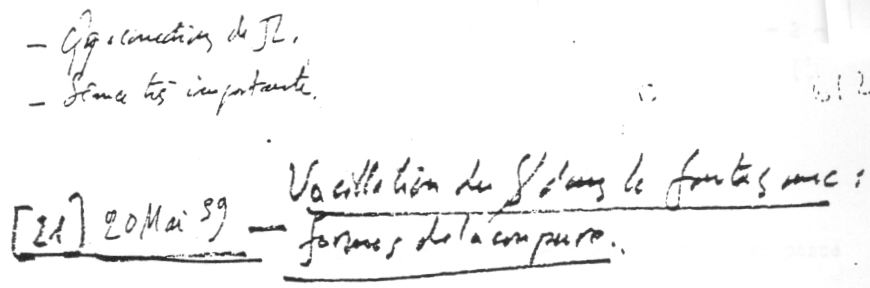 - Qq. corrections de JL.
- Séance très importante.
[21] 20 Mai 59 - Vacillation du $ dans le fantasme :
formes de la coupure.